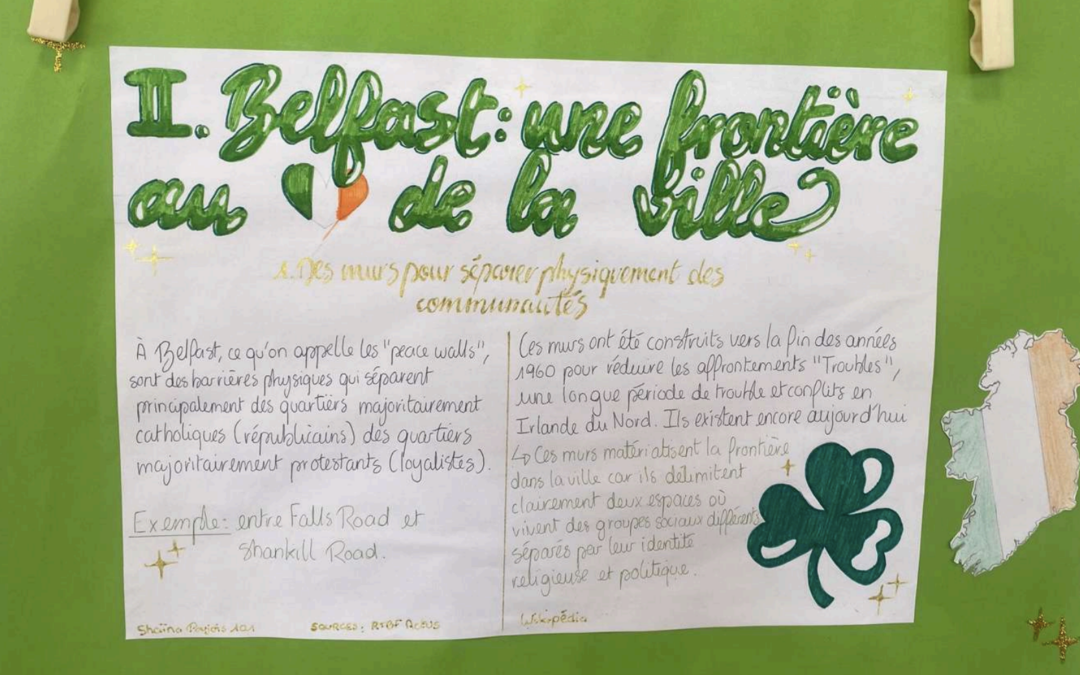 II. Belfast: une frontière
au de la ville
1. Des murs pour séparer physiquement des
communautés
À Belfast, ce qu'on appelle les "peace walls",
sont des barrières physiques qui séparent
principalement des quartiers majoritairement
catholiques (républicains) des quartiers
majoritairement protestants (loyalistes).
Exemple: entre Falls Road et
Shankill Road.
Ces murs ont été construits vers la fin des années
1960 pour réduire les affrontements "Troubles",
une longue période de trouble et conflits en
Irlande du Nord. Ils existent encore aujourd'hui
↳ Ces murs matérialisent la frontière
dans la ville car ils délimitent
clairement deux espaces où
vivent des groupes sociaux différents
séparés par leur identité
religieuse et politique.
Shaïna 101
SOURCES: RTBF Actus
Wikipédia